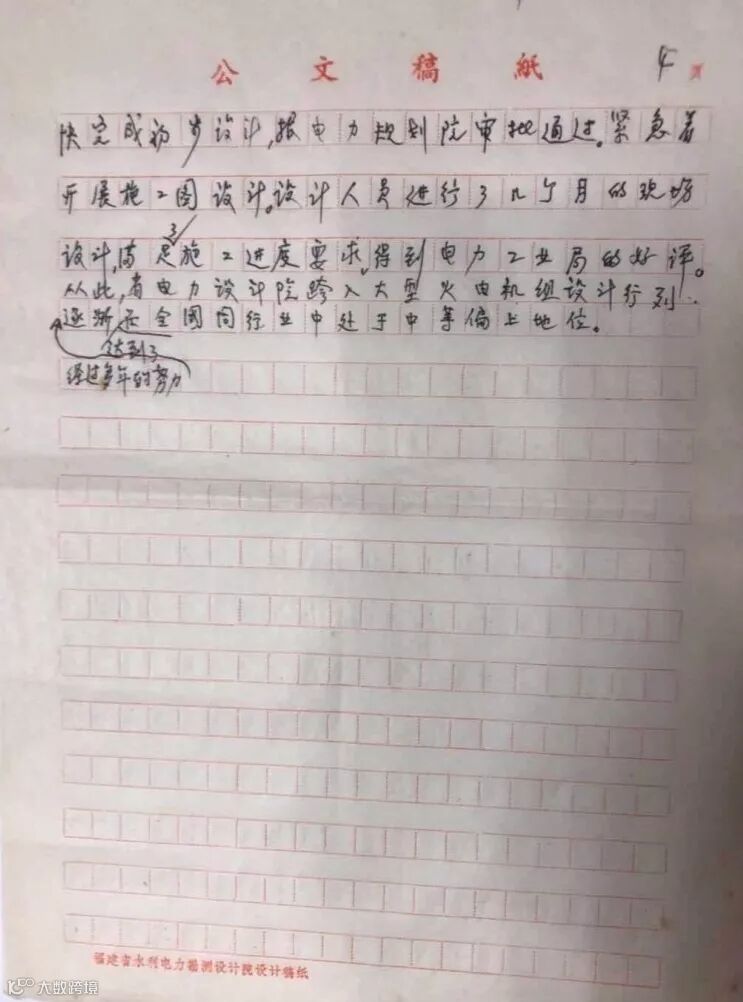 公文稿紙
4 頁
快完成初步设计,报电力规划院审批通过。紧急着
开展施工图设计。设计人员进行了几个月的现场
了
设计,满足施工进度要求,得到电力工业局的好评。
从此,省电力设计院跨入大型火电机组设计行列.
逐渐在全国同行业中处于中等偏上地位。
达到了
经过多年的努力
福建省水利电力勘测设计院设计稿纸
大数跨境